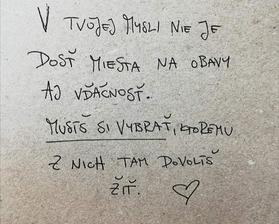 V TVOJEJ MYSLI NIE JE
DOSŤ MIESTA NA OBAVY
AJ VĎAČNOSŤ.
MUSÍŠ SI VYBRAŤ, KTORÉMU
Z NICH TAM DOVOLÍŠ
ŽIŤ.